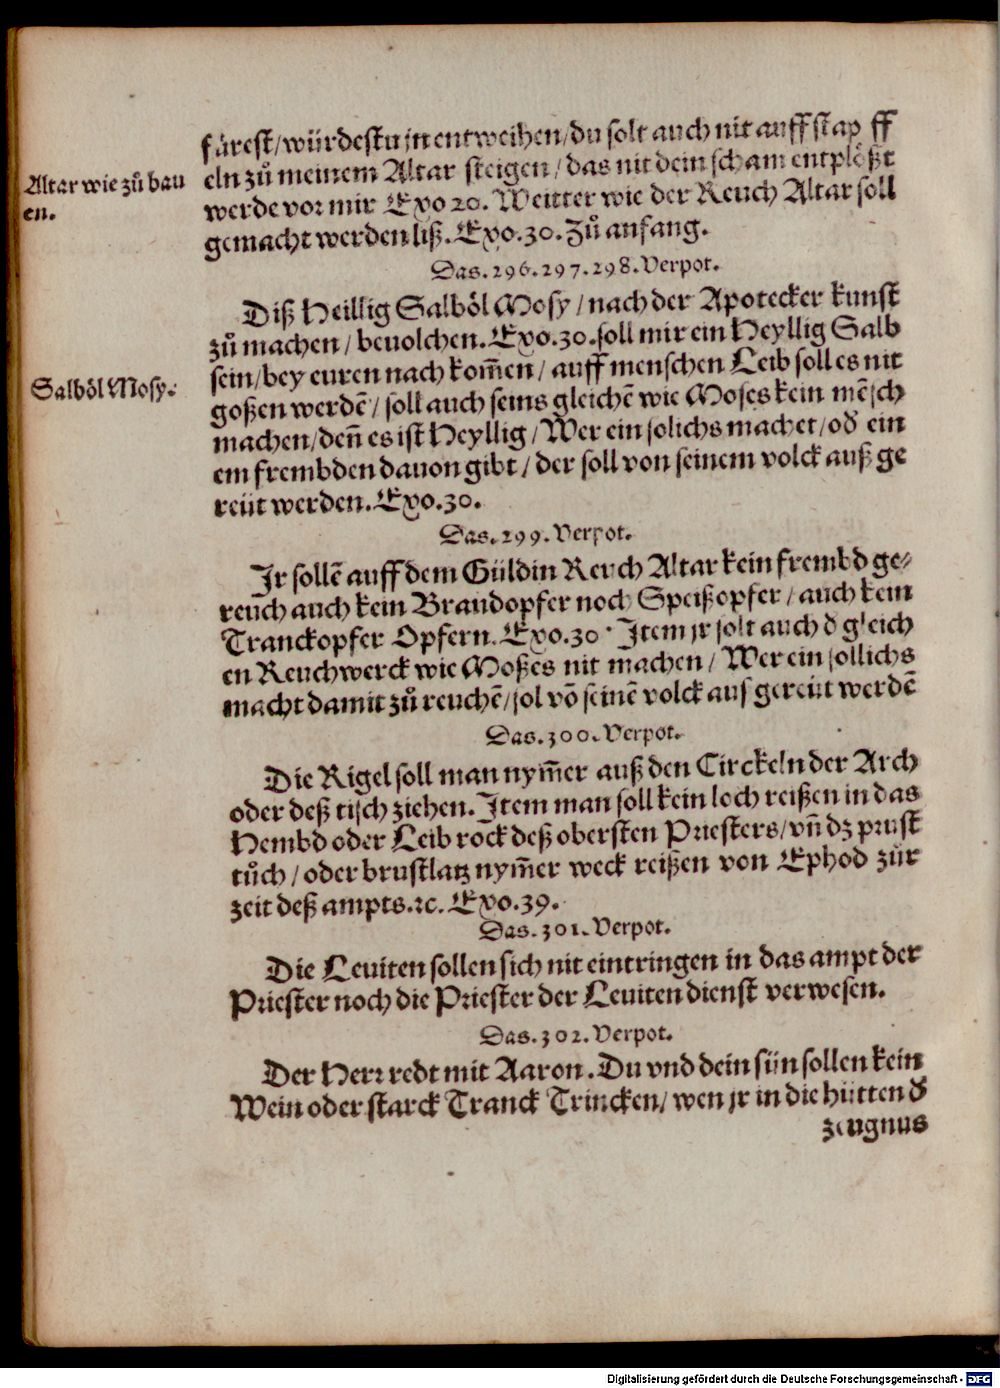 färest/würdestu jn entweihen/du solt auch nit auff stap ff
Altar wie zů bau
en.
eln zů meinem Altar steigen/das nit dein scham entplößt
werde vor mir Exo 20. Weitter wie der Reuch Altar soll
gemacht werden liß. Exo.30. Zů anfang.
Das.296.297.298.Verpot.
Diß Heillig Salböl Mosy/nach der Apotecker kunst
zů machen/beuolchen.Exo.30.soll mir ein Heyllig Salb
Salböl Mosy.
sein/bey euren nach kom̄en/auff menschen Leib soll es nit
goßen werdē/soll auch seins gleichē wie Moses kein mēsch
machen/den̄ es ist Heyllig/Wer ein solichs machet/od̄ ein
em frembden dauon gibt/der soll von seinem volck auß ge
reüt werden.Exo.30.
Das.299.Verpot.
Jr sollē auff dem Güldin Reuch Altar kein frembd ge⸗
reuch auch kein Brandopfer noch Speißopfer/auch kein
Tranckopfer Opfern.Exo.30. Item jr solt auch d gleich
en Reuchwerck wie Moßes nit machen/Wer ein sollichs
macht damit zů reuchē/sol vō seinē volck aus gereüt werdē
Das.300.Verpot.
Die Rigel soll man nym̄er auß den Circkeln der Arch
oder deß tisch ziehen.Item man soll kein loch reißen in das
Hembd oder Leib rock deß obersten Priesters/vn̄ dz prust
tůch/oder brustlatz nym̄er weck reißen von Ephod zůr
zeit deß ampts.ꝛc.Exo.39.
Das.301.Verpot.
Die Leuiten sollen sich nit eintringen in das ampt der
Priester noch die Priester der Leuiten dienst verwesen.
Das.302.Verpot.
Der Herr redt mit Aaron.Du vnd dein sün sollen kein
Wein oder starck Tranck Trincken/wen jr in die hütten d̄
zeugnus
Digitalisierung gefördert durch die Deutsche Forschungsgemeinschaft - DFG